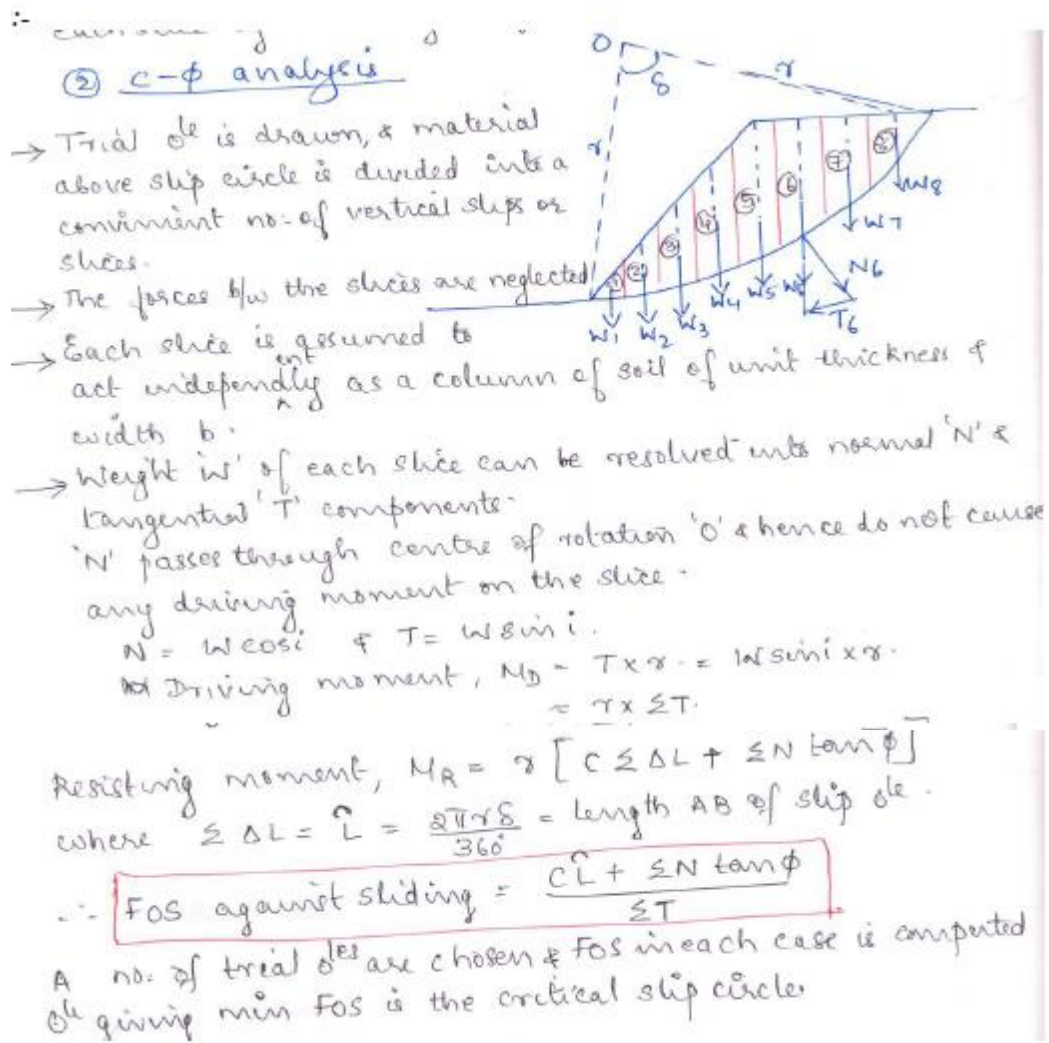 :-
② c-φ analysis
O
δ
r
r
→ Trial ole is drawn, & material
above slip circle is divided into a
convinient no: of vertical slips or
slices.
→ The forces b/w the slices are neglected
① ② ③ ④ ⑤ ⑥ ⑦ ⑧
W1 W2 W3 W4 W5 W6 W7 W8
N6
T6
→ Each slice is assumed to
act independently as a column of soil of unit thickness &
width b.
→ Weight 'W' of each slice can be resolved into normal 'N' &
tangential 'T' components.
'N' passes through centre of rotation 'O' & hence do not cause
any driving moment on the slice.
N = W cosi & T = W sin i.
Driving moment, MD = T x r. = W sini x r.
= r x ΣT.
Resisting moment, MR = r [ C Σ ΔL + ΣN tan φ ]
where Σ ΔL = L̂ = 2πrδ / 360° = length AB of slip ole.
∴ FOS against sliding = (CL̂ + ΣN tan φ) / ΣT
A no: of trial oles are chosen & FOS in each case is computed
ole giving min FOS is the crctical slip circle.